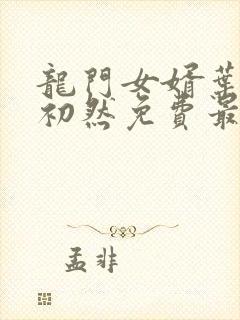 龍門女婿葉
初然免費最
孟非